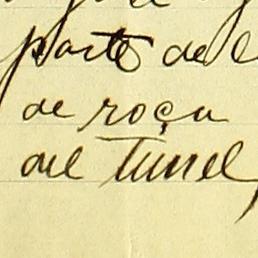 parte de l
de roça
del Tunel,